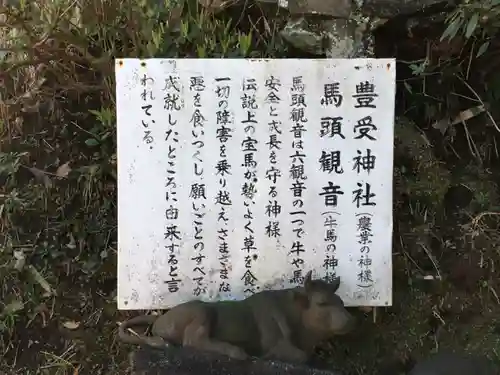 豊受神社(農業の神様)
馬頭観音(牛馬の神様
馬頭観音は六観音の一つで牛や馬
安全と成長を守る神様
伝説上の宝馬が勢いよく草を食べ
一切の障害を乗り越え、さまざまな
悪を食いつくし、願いごとのすべてが
成就したところに由来すると言
われている.